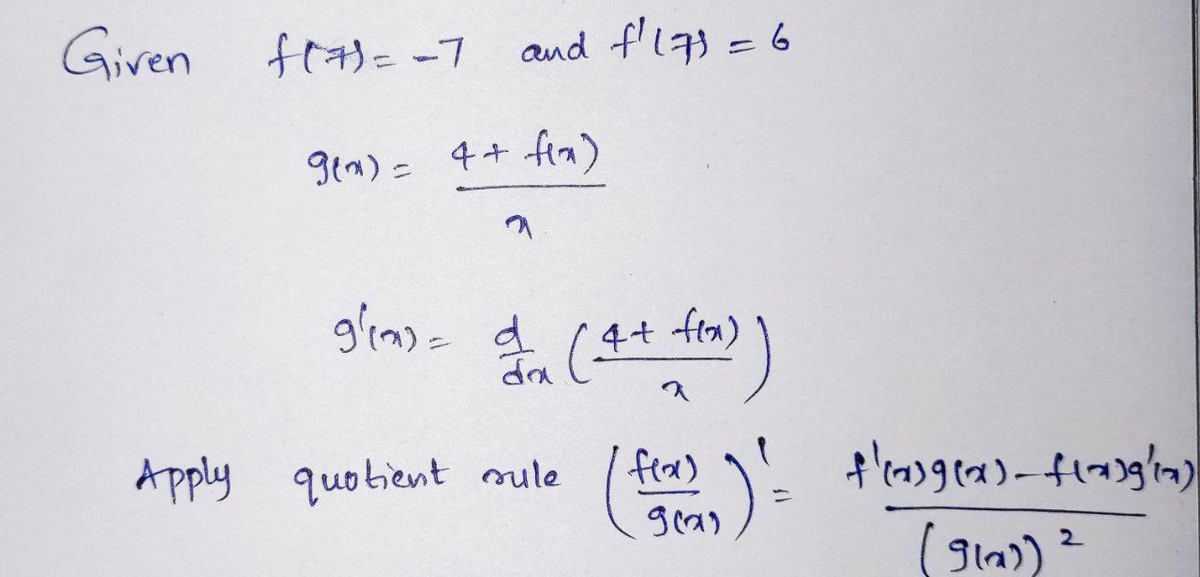 Given f(7) = -7 and f'(7) = 6
g(x) = (4 + f(x)) / x
g'(x) = d/dx ((4 + f(x)) / x)
Apply quotient rule (f(x) / g(x))' = (f'(x)g(x) - f(x)g'(x)) / (g(x))²